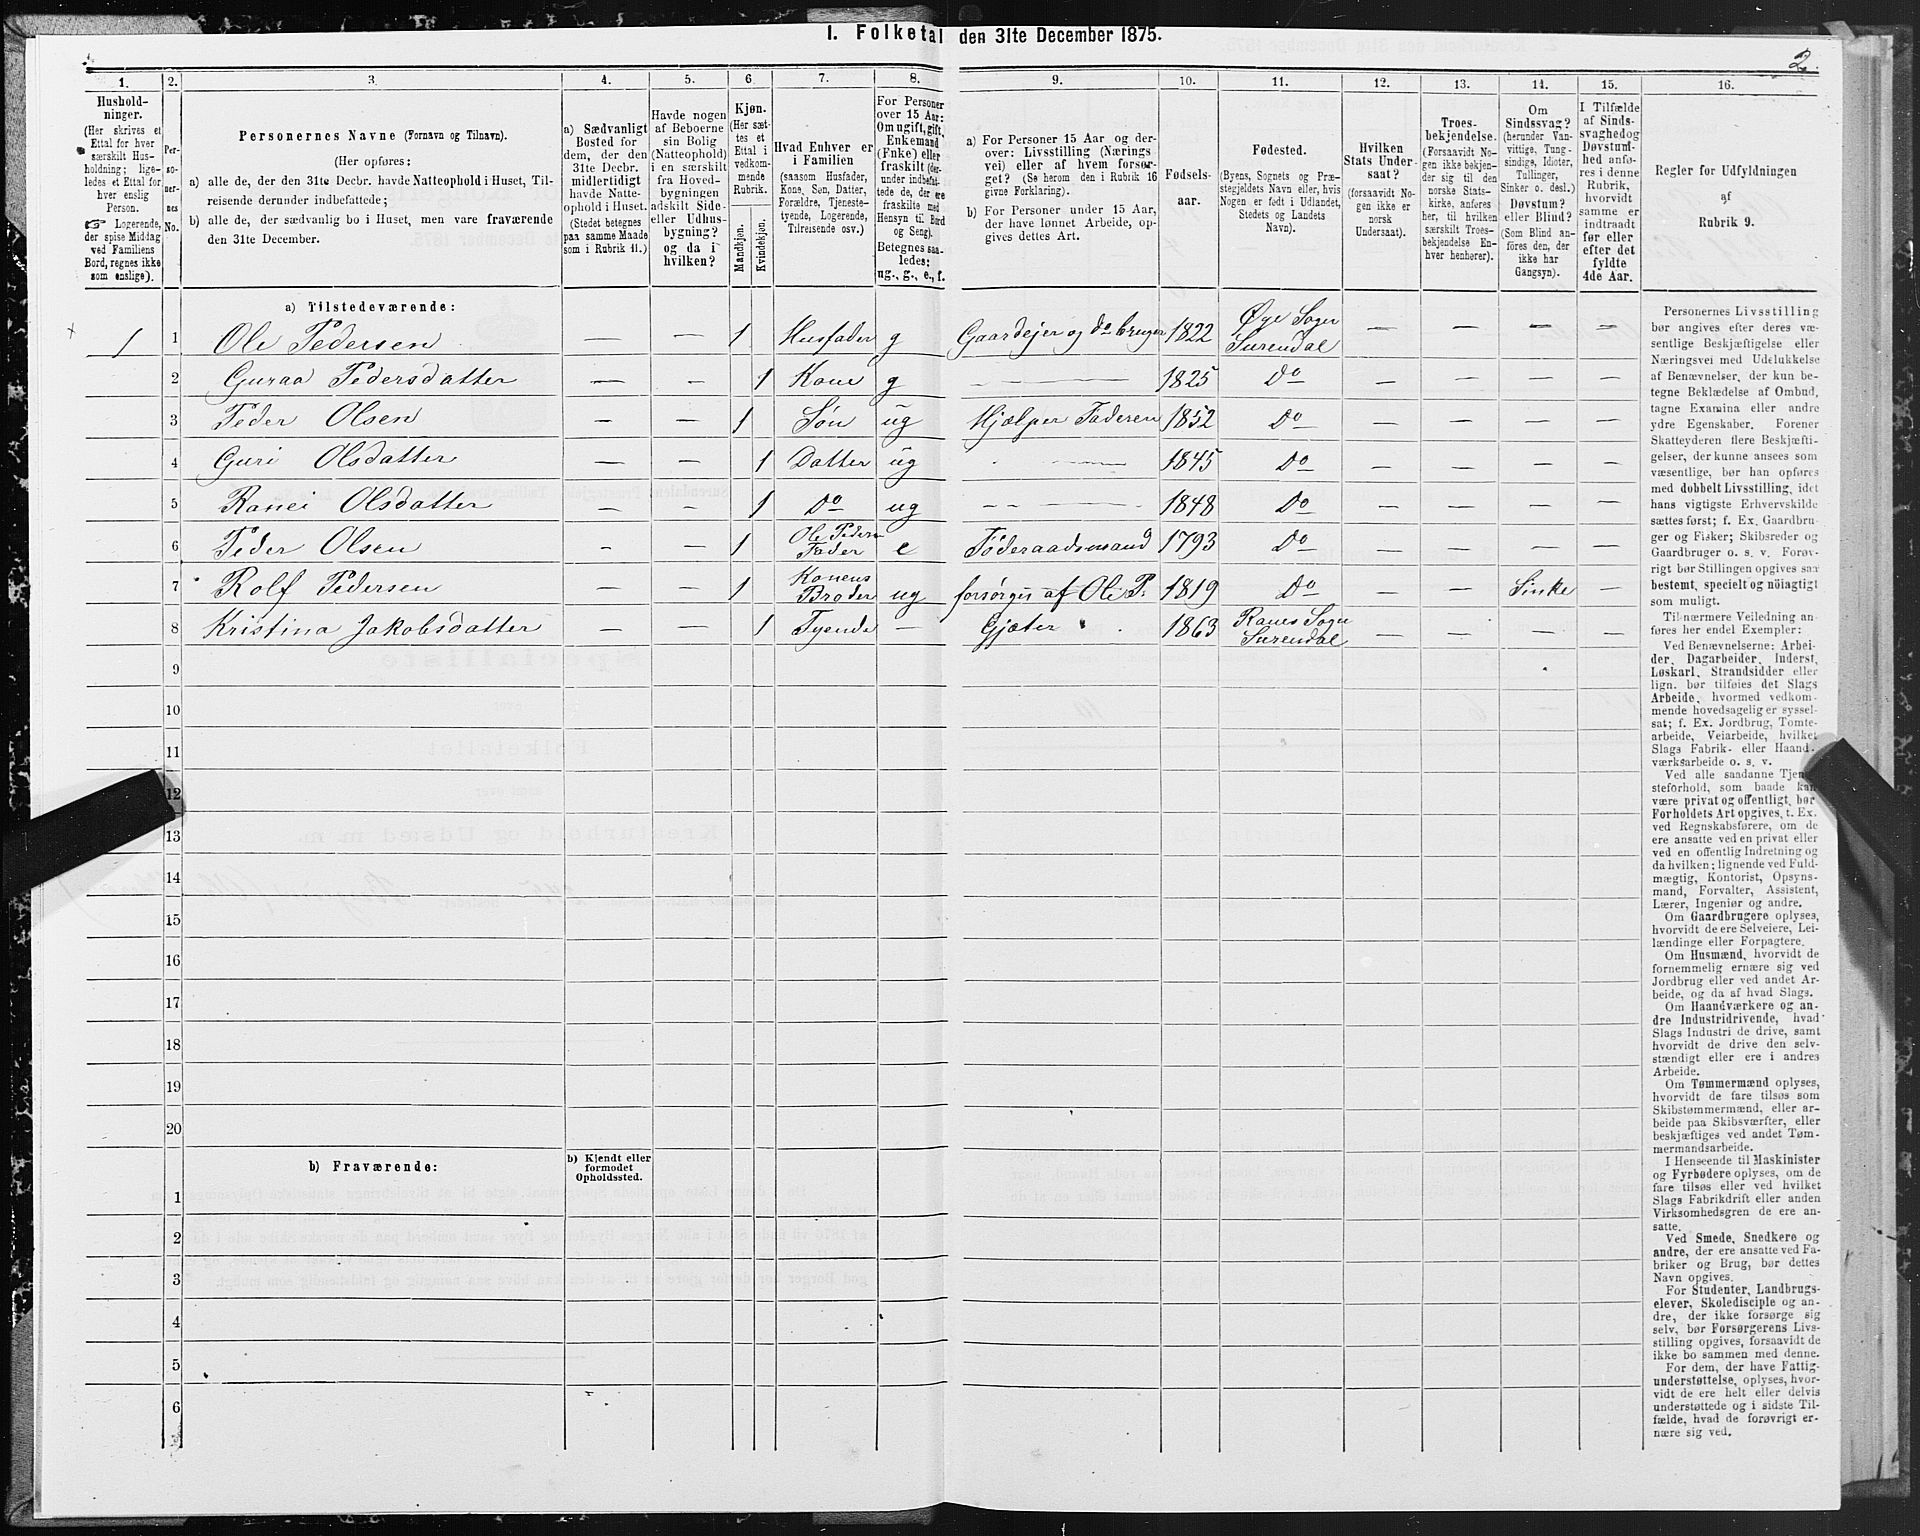 I. Folketal den 31te December 1875.
2.
1.
Hushold-
ninger.
(Her skrives et
Ettal for hver
særskilt Hus-
holdning; lige-
ledes et Ettal for
hver enslig
Person.
☞ Logerende,
der spise Middag
ved Familiens
Bord, regnes ikke
som enslige).
2.
Per-
so-
ner-
nes
No.
3.
Personernes Navne (Fornavn og Tilnavn).
(Her opføres:
a) alle de, der den 31te Decbr. havde Natteophold i Huset, Til-
reisende derunder indbefattede;
b) alle de, der sædvanlig bo i Huset, men vare fraværende
den 31te December.
4.
a) Sædvanligt
Bosted for
dem, der den
31te Decbr.
midlertidigt
havde Natte-
ophold i Huset.
(Stedet betegnes
paa samme Maade
som i Rubrik 11.)
5.
Havde nogen
af Beboerne
sin Bolig
(Natteophold)
i en særskilt
fra Hoved-
bygningen
adskilt Side-
eller Udhus-
bygning?
og da i
hvilken?
6.
Kjøn.
(Her sæt-
tes et
Ettal i
vedkom-
mende
Rubrik.
Mandkjøn.
Kvindekjøn.
7.
Hvad Enhver er
i Familien
(saasom Husfader,
Kone, Søn, Datter,
Forældre, Tjeneste-
tyende, Logerende,
Tilreisende osv.)
8.
For Personer
over 15 Aar:
Om ugift, gift,
Enkemand
(Enke) eller
fraskilt (der-
under indbefat-
tede de, der ere
fraskilte med
Hensyn til Bord
og Seng).
Betegnes saa-
ledes:
ug., g., e., f.
9.
a) For Personer 15 Aar og der-
over: Livsstilling (Nærings-
vei) eller af hvem forsør-
get? (Se herom den i Rubrik 16
givne Forklaring).
b) For Personer under 15 Aar,
der have lønnet Arbeide, op-
gives dettes Art.
10.
Fødsels-
aar.
11.
Fødested.
(Byens, Sognets og Præ-
stegjeldets Navn eller, hvis
Nogen er født i Udlandet,
Stedets og Landets
Navn).
12.
Hvilken
Stats Under-
saat?
(forsaavidt No-
gen ikke er
norsk
Undersaat).
13.
Troes-
bekjendelse.
(Forsaavidt No-
gen ikke bekjen-
der sig til den
norske Stats-
kirke, anføres
her, til hvilken
særskilt Troes-
bekjendelse En-
hver henhører).
14.
Om
Sindssvag?
(herunder Van-
vittige, Tung-
sindige, Idioter,
Tullinger,
Sinker o. desl.)
Døvstum?
eller Blind?
(Som Blind an-
føres den, der
ikke har
Gangsyn).
15.
I Tilfælde
af Sinds-
svaghed og
Døvstum-
hed anfø-
res i denne
Rubrik,
hvorvidt
samme er
indtraadt
før eller
efter det
fyldte
4de Aar.
16.
Regler for Udfyldningen
af
Rubrik 9.
a) Tilstedeværende:
1 1 Ole Pedersen — — 1 Husfader g Gaardejer og do bruger 1822 Øye Sogn Surendal — — — —
2 Guraa Pedersdatter — — 1 Kone g — 1825 Do — — — —
3 Peder Olsen — — 1 Søn ug Hjælper Faderen 1852 Do — — — —
4 Guri Olsdatter — — 1 Datter ug — 1845 Do — — — —
5 Ranei Olsdatter — — 1 Do ug — 1848 Do — — — —
6 Peder Olsen — — 1 Ole Peders Fader e Føderaadsmand 1793 Do — — — —
7 Rolf Pedersen — — 1 Konens Broder ug forsørges af Ole P. 1819 Do — — Sinke —
8 Kristina Jakobsdatter — — 1 Tyende — Gjæter 1863 Ranes Sogn Surendal — — — —
9
10
11
12
13
14
15
16
17
18
19
20
b) Fraværende:
b) Kjendt eller
formodet
Opholdssted.
1
2
3
4
5
6
Personernes Livsstilling
bør angives efter deres væ-
sentlige Beskjæftigelse eller
Næringsvei med Udelukkelse
af Benævnelser, der kun be-
tegne Beklædelse af Ombud,
tagne Examina eller andre
ydre Egenskaber. Forener
Skatteyderen flere Beskjæfti-
gelser, der kunne ansees som
væsentlige, bør han opføres
med dobbelt Livsstilling, idet
hans vigtigste Erhvervskilde
sættes først; f. Ex. Gaardbru-
ger og Fisker; Skibsreder og
Gaardbruger o. s. v. Forøv-
rigt bør Stillingen opgives saa
bestemt, specielt og nøiagtigt
som muligt.
Til nærmere Veiledning an-
føres her endel Exempler:
Ved Benævnelserne: Arbei-
der, Dagarbeider, Inderst,
Løskarl, Strandsidder eller
lign. bør tilføies det Slags
Arbeide, hvormed vedkom-
mende hovedsagelig er syssel-
sat; f. Ex. Jordbrug, Tomte-
arbeide, Veiarbeide, hvilket
Slags Fabrik- eller Haand-
værksarbeide o. s. v.
Ved alle saadanne Tjene-
steforhold, som baade kan
være privat og offentligt, bør
Forholdets Art opgives, t. Ex.
ved Regnskabsførere, om de
ere ansatte ved en privat eller
ved en offentlig Indretning og
da hvilken; lignende ved Fuld-
mægtig, Kontorist, Opsyns-
mand, Forvalter, Assistent,
Lærer, Ingeniør og andre.
Om Gaardbrugere oplyses,
hvorvidt de ere Selveiere, Lei-
lændinge eller Forpagtere.
Om Husmænd, hvorvidt de
fornemmelig ernære sig ved
Jordbrug eller ved andet Ar-
beide, og da af hvad Slags.
Om Haandværkere og an-
dre Industridrivende, hvad
Slags Industri de drive, samt
hvorvidt de drive den selv-
stændigt eller ere i andres
Arbeide.
Om Tømmermænd oplyses,
hvorvidt de fare tilsøs som
Skibstømmermænd, eller ar-
beide paa Skibsværfter, eller
beskjæftiges ved andet Tøm-
mermandsarbeide.
I Henseende til Maskinister
og Fyrbødere oplyses, om de
fare tilsøs eller ved hvilket
Slags Fabrikdrift eller anden
Virksomhedsgren de ere an-
satte.
Ved Smede, Snedkere og
andre, der ere ansatte ved Fa-
briker og Brug, bør dettes
Navn opgives.
For Studenter, Landbrugs-
elever, Skoledisciple og an-
dre, der ikke forsørge sig
selv, bør Forsørgerens Livs-
stilling opgives, forsaavidt de
ikke bo sammen med denne.
For dem, der have Fattig-
understøttelse, oplyses, hvor-
vidt de ere helt eller delvis
understøttede og i sidste Til-
fælde, hvad de forøvrigt er-
nære sig ved.